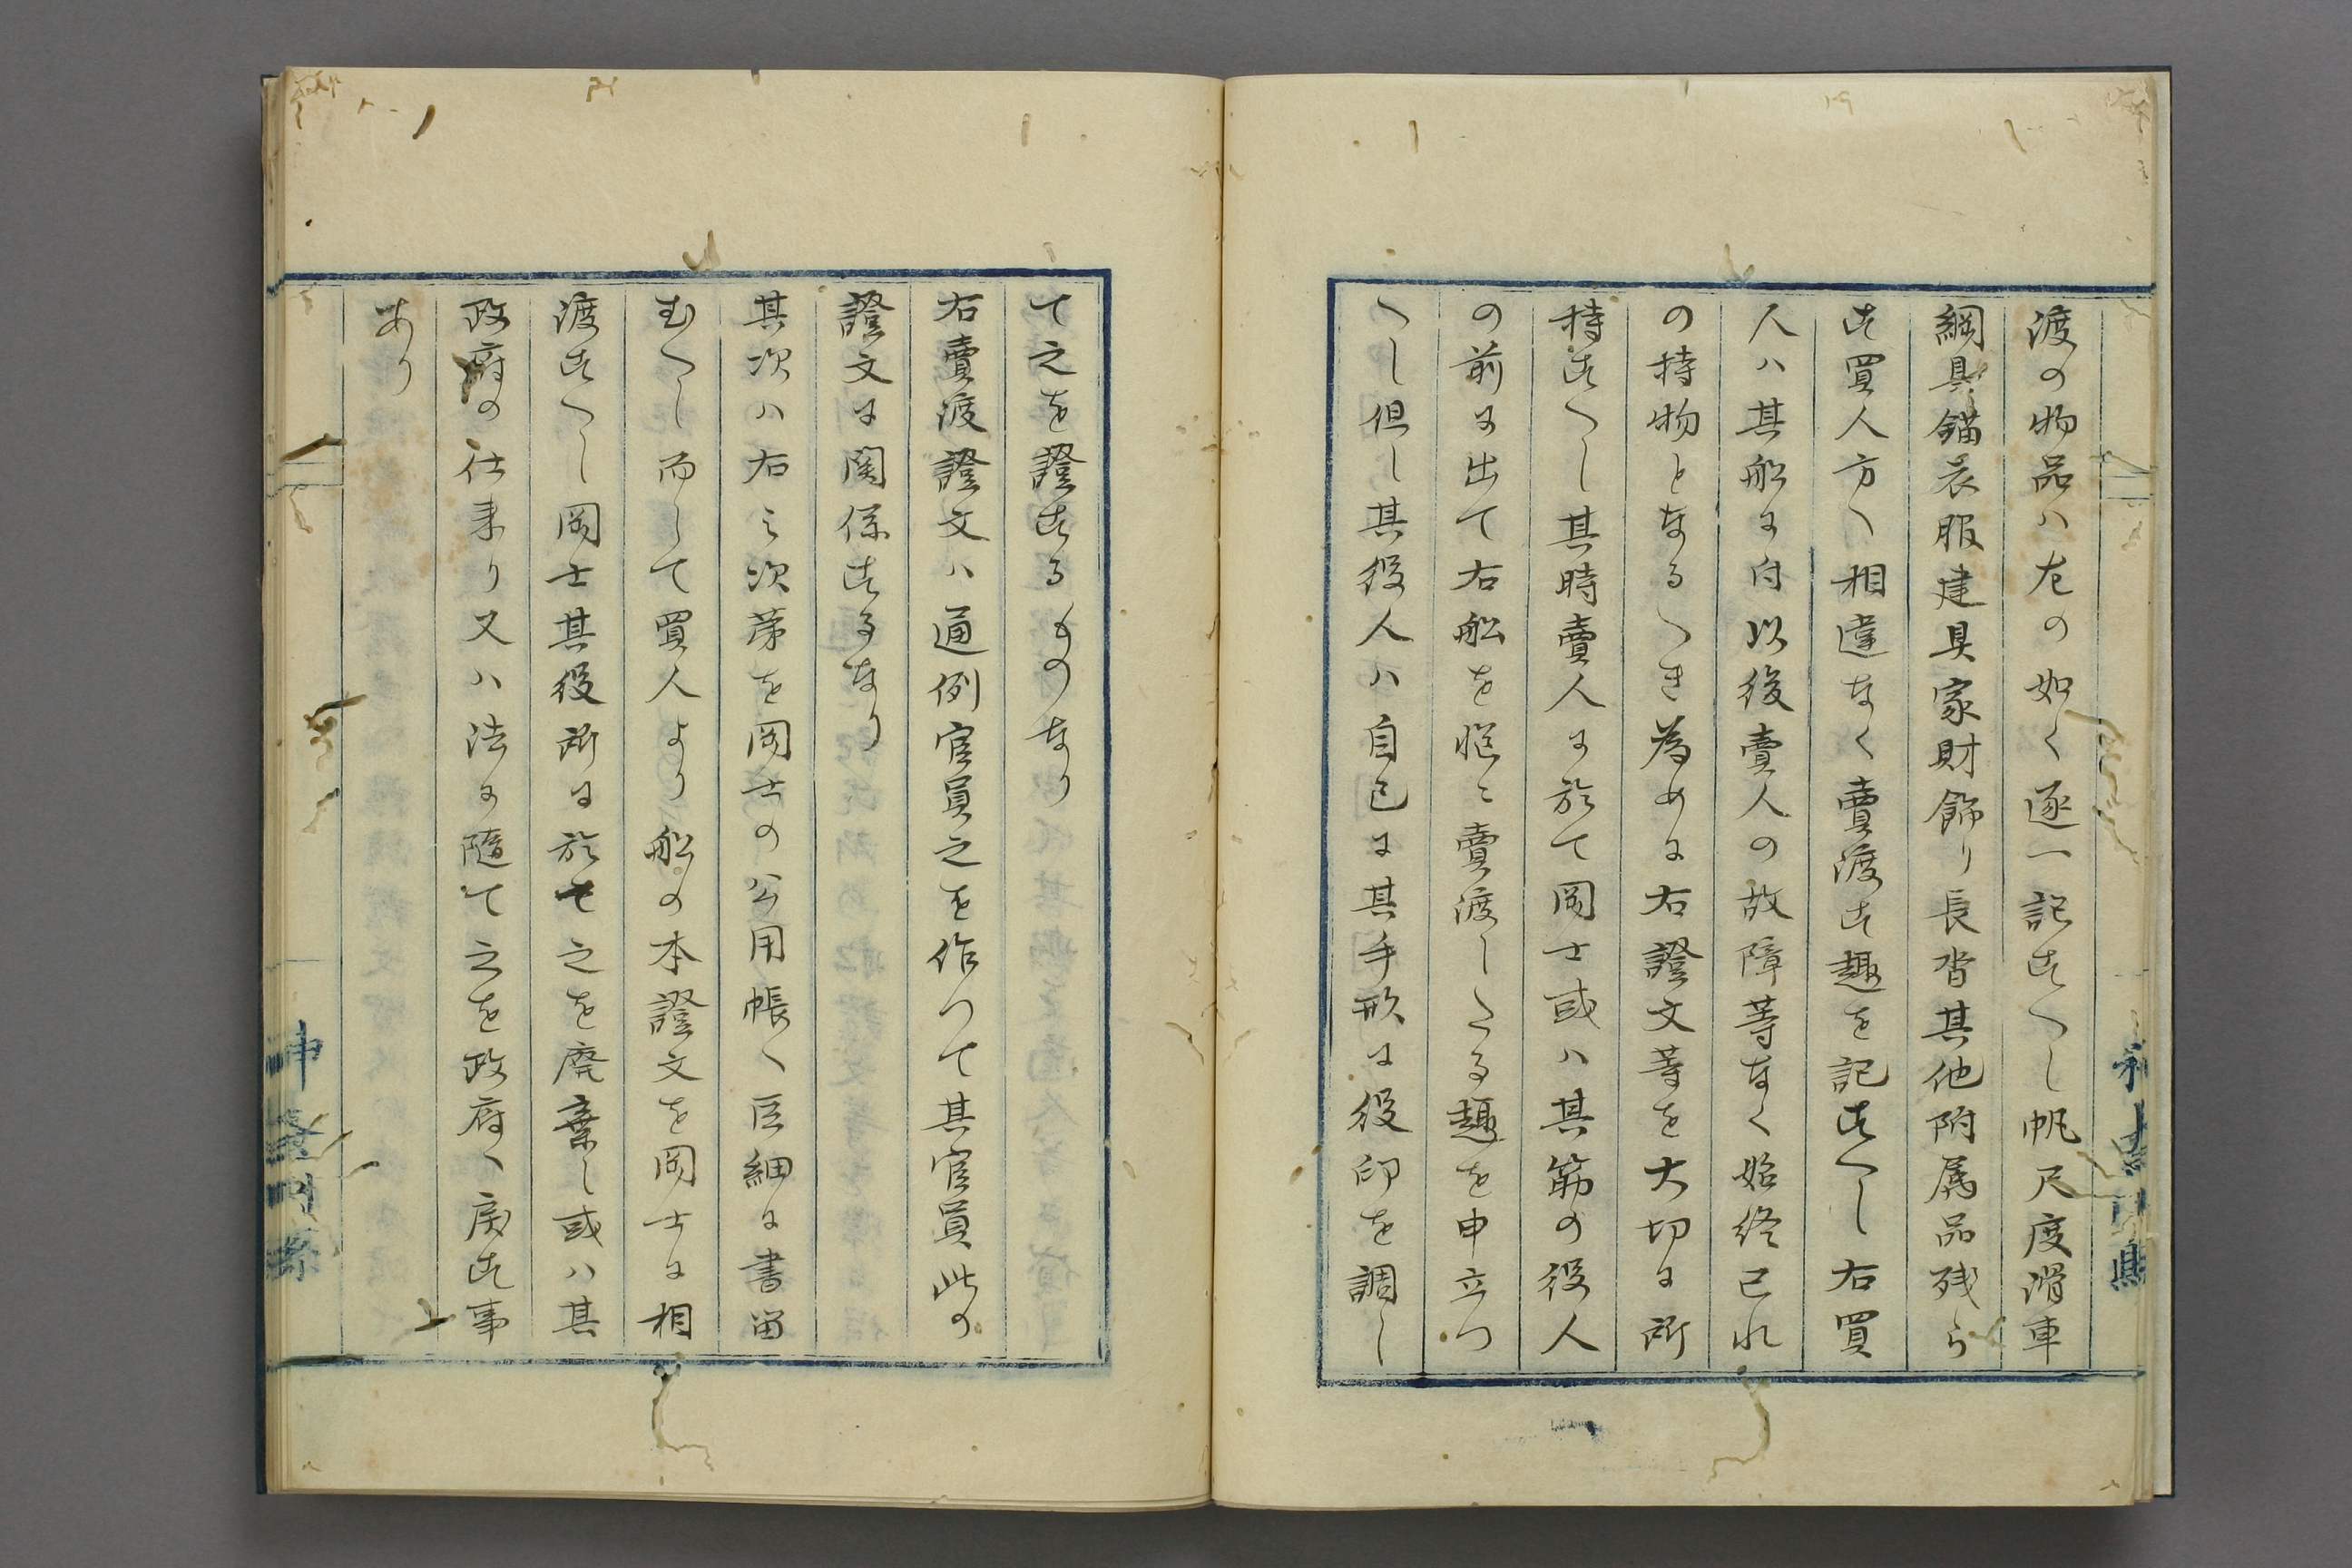 渡の物品ハ左の如く逐一記すへし帆尺度滑車
綱具錨衣服建具家財飾り長沓其他附属品残ら
す買人方へ相違なく賣渡す趣を記すへし右買
人ハ其船に付以後賣人の故障等なく始終己れ
の持物となるへき為めに右證文等を大切に所
持すへし其時賣人に於て岡士或ハ其筋の役人
の前に出て右船を慥に賣渡したる趣を申立つ
へし但し其役人ハ自己に其手形に役印を調し
て之を證するものなり
右賣渡證文ハ通例官員之を作つて其官員此の
證文に関係するなり
其次ハ右之次第を岡士の公用帳へ巨細に書留
むへし而して買人より船の本證文を岡士に相
渡すへし岡士其役所に於て之を廃棄し或ハ其
政府の仕来り又ハ法に随て之を政府へ戻す事
あり
神奈川縣